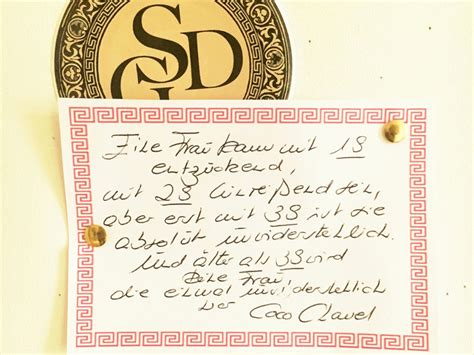 SD
Eine Frau kann mit 19
entzückend,
mit 29 hinreißend sein,
aber erst mit 39 ist sie
absolut unwiderstehlich.
Und älter als 39 wird
keine Frau,
die einmal unwiderstehlich
war Coco Chanel